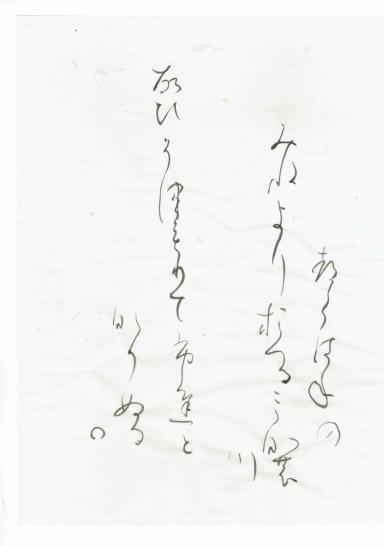 つくはねの
みねよりおつるみなの
川
こひそつもりてふちと
なりぬる